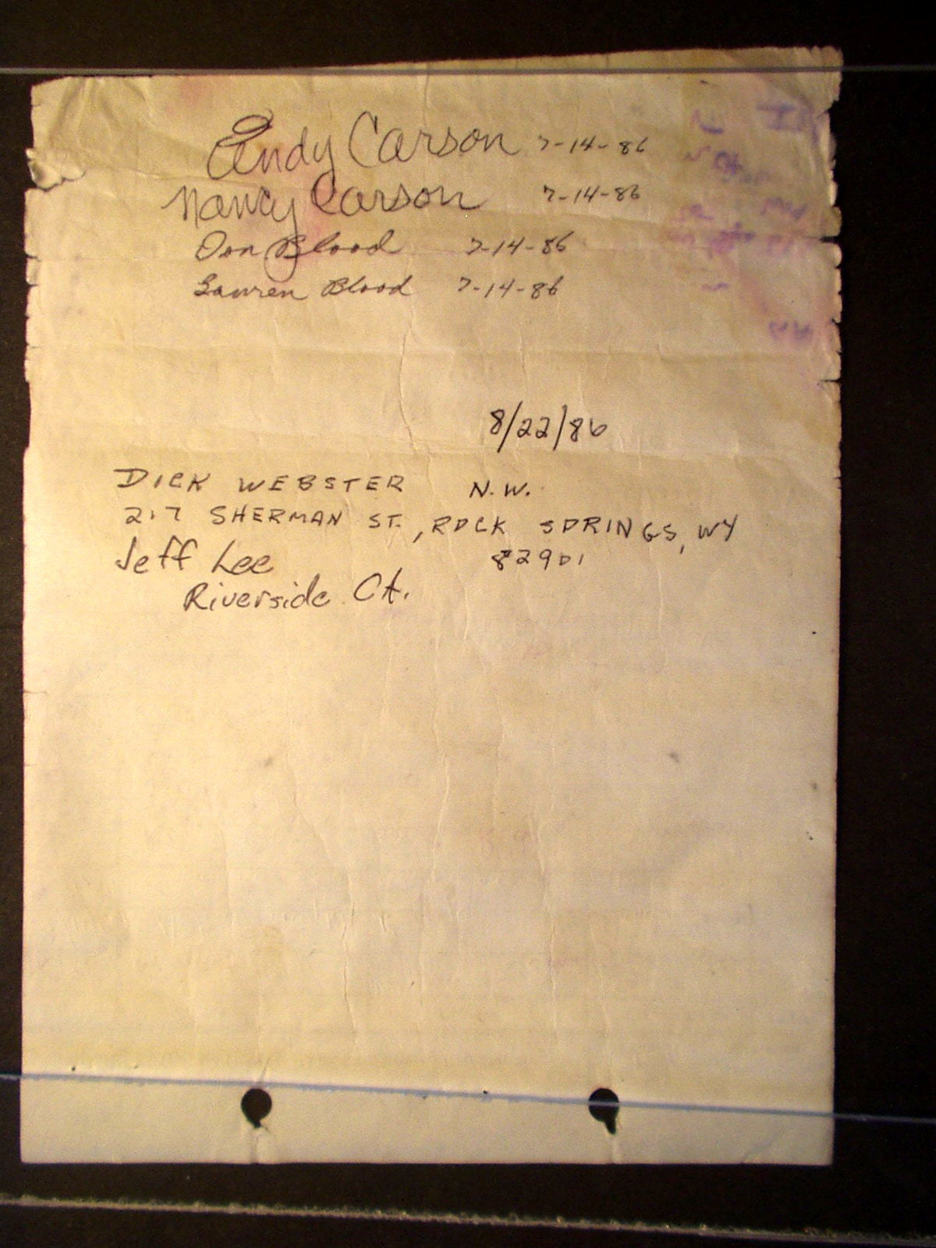 Andy Carson 7-14-86
Nancy Carson 7-14-86
Don Blood 7-14-86
Lauren Blood 7-14-86
8/22/86
DICK WEBSTER N.W.
217 SHERMAN ST., ROCK SPRINGS, WY
82901
Jeff Lee
Riverside CA.